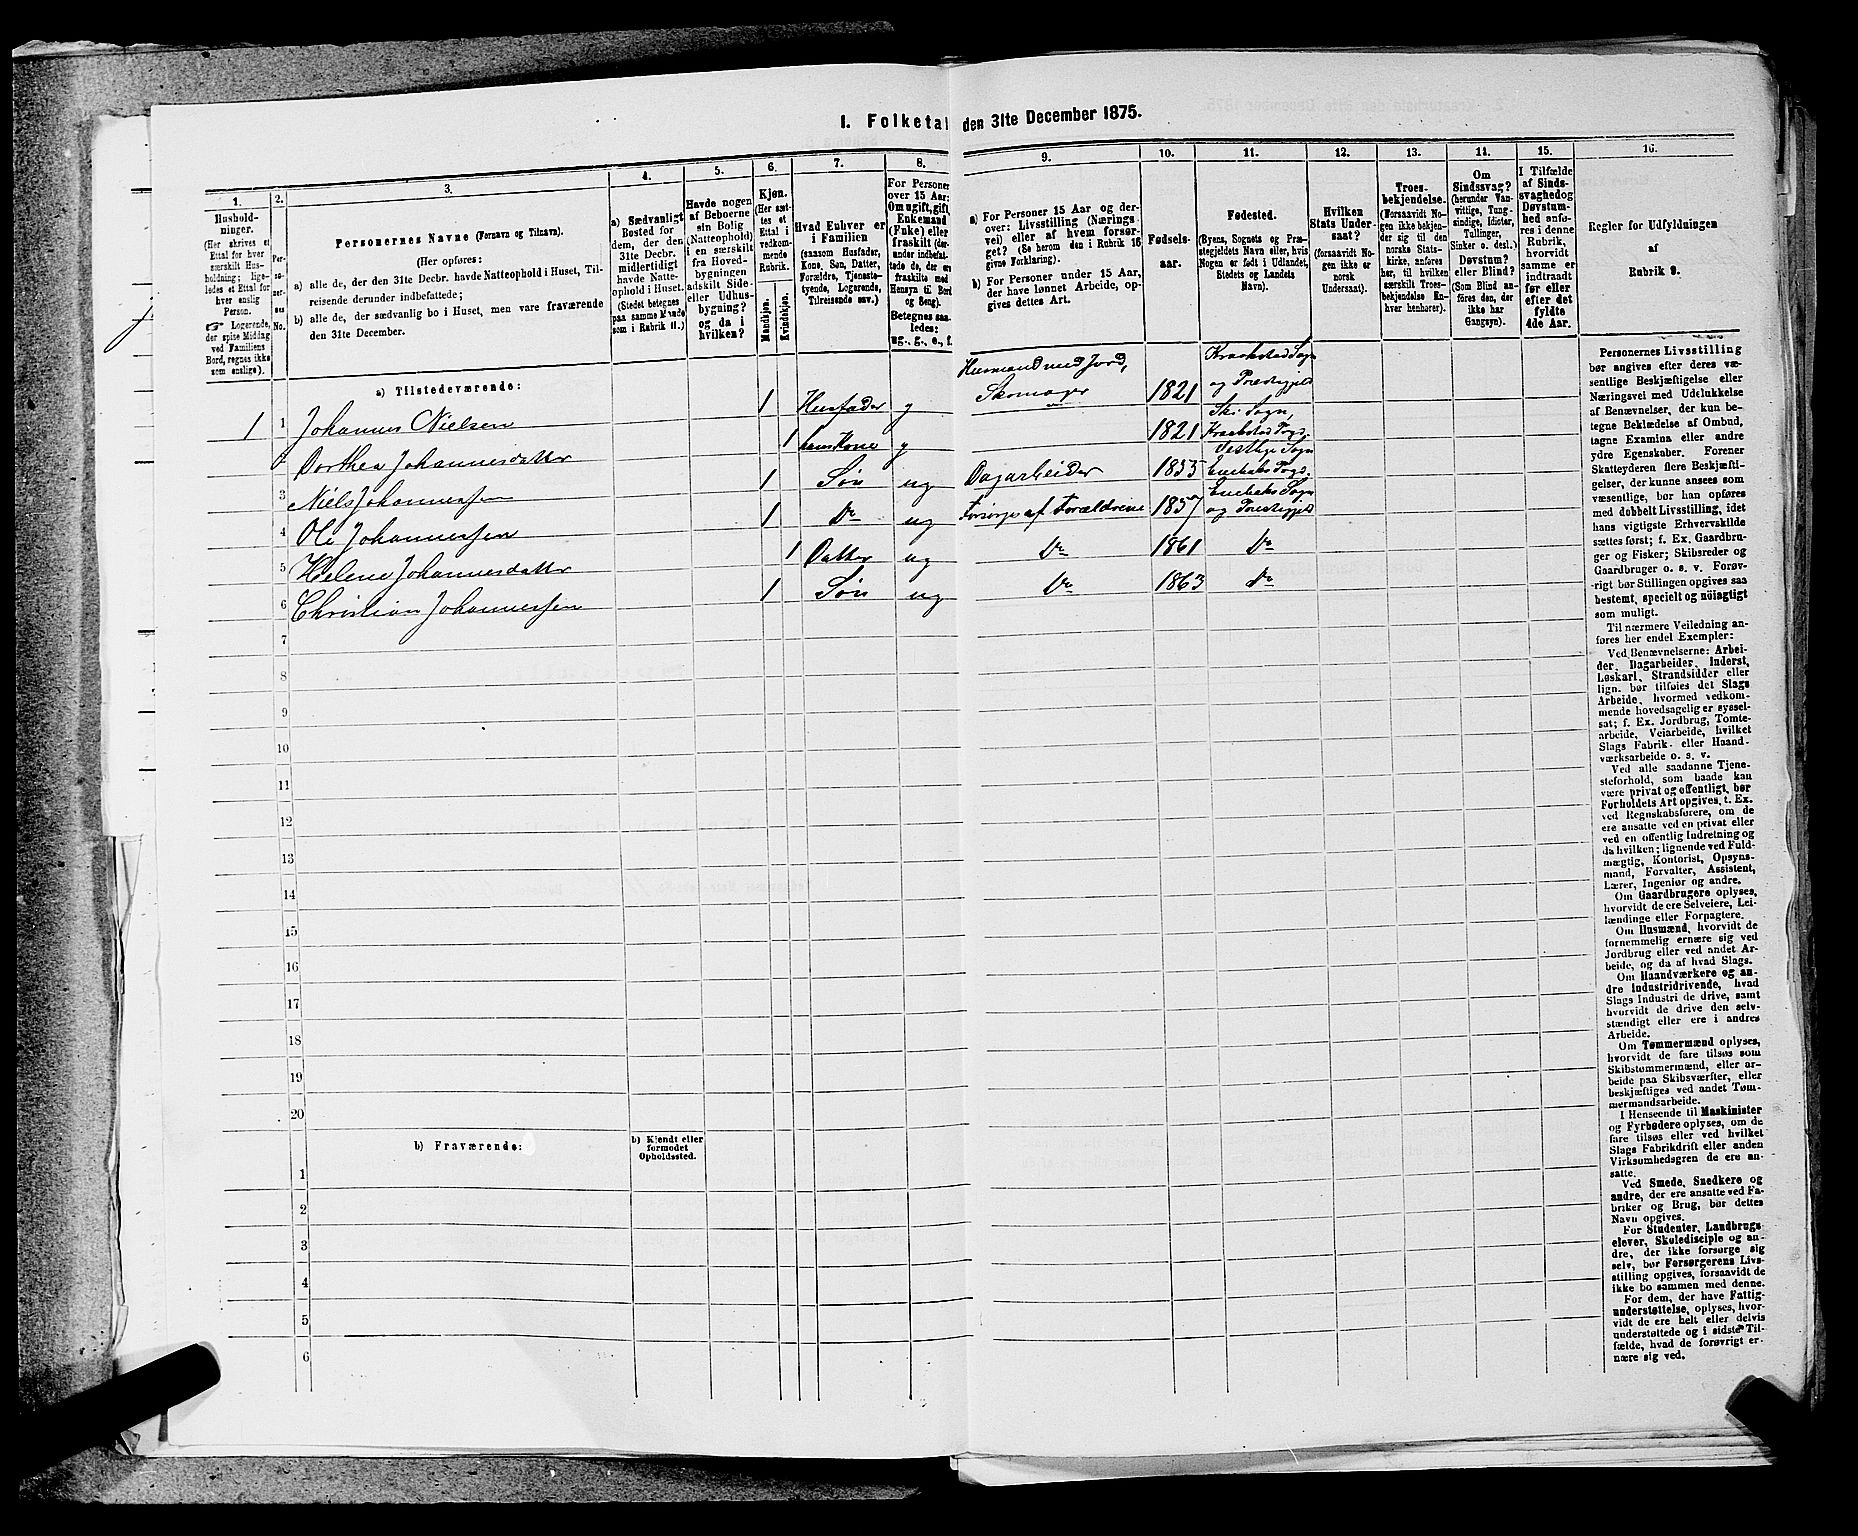 1. Folketal den 31te December 1875.
1.
Hushold-
ninger.
(Her skrives et
Ettal for hver
særskilt Hus-
holdning; lige-
ledes et Ettal for
hver enslig
Person.
☞ Logerende,
der spise Middag
ved Familiens
Bord, regnes ikke
som enslige).
2.
Per-
so-
ner-
nes
No.
3.
Personernes Navne (Fornavn og Tilnavn).
(Her opføres:
a) alle de, der den 31te Decbr. havde Natteophold i Huset, Til-
reisende derunder indbefattede;
b) alle de, der sædvanlig bo i Huset, men vare fraværende
den 31te December.
4.
a) Sædvanligt
Bosted for
dem, der den
31te Decbr.
midlertidigt
havde Natte-
ophold i Huset.
(Stedet betegnes
paa samme Maade
som i Rubrik 11.)
5.
Havde nogen
af Beboerne
sin Bolig
(Natteophold)
i en særskilt
fra Hoved-
bygningen
adskilt Side-
eller Udhus-
bygning?
og da i
hvilken?
6.
Kjøn.
(Her sæt-
tes et
Ettal i
vedkom-
mende
Rubrik.
Mandkjøn.
Kvindekjøn.
7.
Hvad Enhver er
i Familien
(saasom Husfader,
Kone, Søn, Datter,
Forældre, Tjeneste-
tyende, Logerende,
Tilreisende osv.)
8.
For Personer
over 15 Aar:
Om ugift, gift,
Enkemand
(Enke) eller
fraskilt (der-
under indbefat-
tede de, der ere
fraskilte med
Hensyn til Bord
og Seng).
Betegnes saa-
ledes:
ug., g., e., f.
9.
a) For Personer 15 Aar og der-
over: Livsstilling (Nærings-
vei) eller af hvem forsør-
get? (Se herom den i Rubrik 16
givne Forklaring).
b) For Personer under 15 Aar,
der have lønnet Arbeide, op-
gives dettes Art.
10.
Fødsels-
aar.
11.
Fødested.
(Byens, Sognets og Præ-
stegjeldets Navn eller, hvis
Nogen er født i Udlandet,
Stedets og Landets
Navn).
12.
Hvilken
Stats Under-
saat?
(forsaavidt No-
gen ikke er
norsk
Undersaat).
13.
Troes-
bekjendelse.
(Forsaavidt No-
gen ikke bekjen-
der sig til den
norske Stats-
kirke, anføres
her, til hvilken
særskilt Troes-
bekjendelse En-
hver henhører).
14.
Om
Sindssvag?
(herunder Van-
vittige, Tung-
sindige, Idioter,
Tullinger,
Sinker o. desl.)
Døvstum?
eller Blind?
(Som Blind an-
føres den, der
ikke har
Gangsyn).
15.
I Tilfælde
af Sinds-
svaghed og
Døvstum-
hed anfø-
res i denne
Rubrik,
hvorvidt
samme er
indtraadt
før eller
efter det
fyldte
4de Aar.
16.
Regler for Udfyldningen
af
Rubrik 9.
a) Tilstedeværende:
Husmand med Jord, Kraakstad Sogn
1 1 Johannes Nielsen 1 Husfader g Skomager 1821 og Præstegjeld
Ski Sogn,
2 Dorthea Johannesdatter 1 hans Kone g 1821 Kraakstad Pregj.
3 Niels Johannessen 1 Søn ug Dagarbeider 1855 Enebaks Pregj.
4 Ole Johannessen 1 Do ug Forsørges af Forældrene 1857 Enebaks Sogn og Præstegjeld
5 Helene Johannesdatter 1 Datter ug Do 1861 Do
6 Christian Johannessen 1 Søn ug Do 1863 Do
7
8
9
10
11
12
13
14
15
16
17
18
19
20
b) Fraværende:
b) Kjendt eller
formodet
Opholdssted.
1
2
3
4
5
6
Personernes Livsstilling
bør angives efter deres væ-
sentlige Beskjæftigelse eller
Næringsvei med Udelukkelse
af Benævnelser, der kun be-
tegne Beklædelse af Ombud,
tagne Examina eller andre
ydre Egenskaber. Forener
Skatteyderen flere Beskjæfti-
gelser, der kunne ansees som
væsentlige, bør han opføres
med dobbelt Livsstilling, idet
hans vigtigste Erhvervskilde
sættes først; f. Ex. Gaardbru-
ger og Fisker; Skibsreder og
Gaardbruger o. s. v. Forøv-
rigt bør Stillingen opgives saa
bestemt, specielt og nöiagtigt
som muligt.
Til nærmere Veiledning an-
føres her endel Exempler:
Ved Benævnelserne: Arbei-
der, Dagarbeider, Inderst,
Løskarl, Strandsidder eller
lign. bør tilføies det Slags
Arbeide, hvormed vedkom-
mende hovedsagelig er syssel-
sat; f. Ex. Jordbrug, Tomte-
arbeide, Veiarbeide, hvilket
Slags Fabrik- eller Haand-
værksarbeide o. s. v.
Ved alle saadanne Tjene-
steforhold, som baade kan
være privat og offentligt, bør
Forholdets Art opgives, t. Ex.
ved Regnskabsførere, om de
ere ansatte ved en privat eller
ved en offentlig Indretning og
da hvilken; lignende ved Fuld-
mægtig, Kontorist, Opsyns-
mand, Forvalter, Assistent,
Lærer, Ingeniør og andre.
Om Gaardbrugere oplyses,
hvorvidt de ere Selveiere, Lei-
lændinge eller Forpagtere.
Om Husmænd, hvorvidt de
fornemmelig ernære sig ved
Jordbrug eller ved andet Ar-
beide, og da af hvad Slags.
Om Haandværkere og an-
dre Industridrivende, hvad
Slags Industri de drive, samt
hvorvidt de drive den selv-
stændigt eller ere i andres
Arbeide.
Om Tømmermænd oplyses,
hvorvidt de fare tilsøs som
Skibstømmermænd, eller ar-
beide paa Skibsværfter, eller
beskjæftiges ved andet Tøm-
mermandsarbeide.
I Henseende til Maskinister
og Fyrbødere oplyses, om de
fare tilsøs eller ved hvilket
Slags Fabrikdrift eller anden
Virksomhedsgren de ere an-
satte.
Ved Smede, Snedkere og
andre, der ere ansatte ved Fa-
briker og Brug, bør dettes
Navn opgives.
For Studenter, Landbrugs-
elever, Skoledisciple og an-
dre, der ikke forsørge sig
selv, bør Forsørgerens Livs-
stilling opgives, forsaavidt de
ikke bo sammen med denne.
For dem, der have Fattig-
understøttelse, oplyses, hvor-
vidt de ere helt eller delvis
understøttede og i sidste Til-
fælde, hvad de forøvrigt er-
nære sig ved.